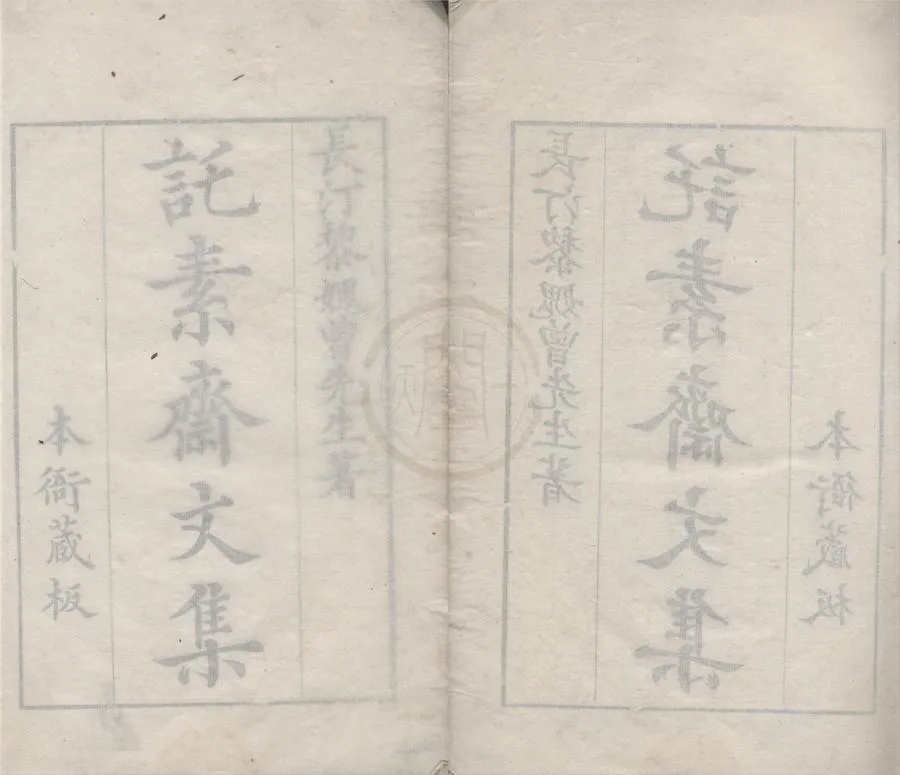 長汀黎媿曾先生著
託素齋文集
本衙藏板
長汀黎媿曾先生著
託素齋文集
本衙藏板